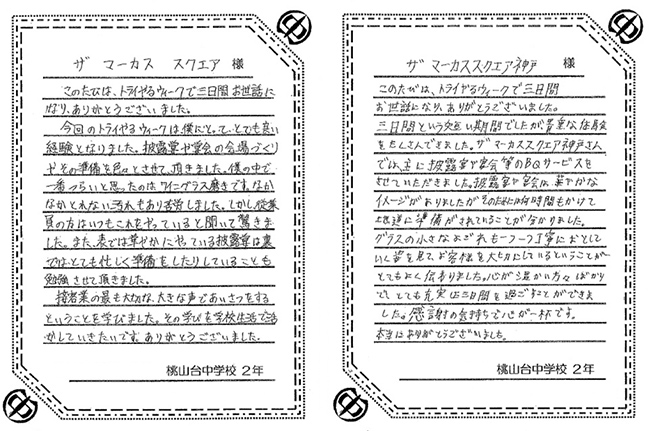 ザ マーカス スクエア 様
このたびは、トライやるウィークで三日間お世話に
なり、ありがとうございました。
今回のトライやるウィークは、僕にとって、とても良い
経験となりました。披露宴や宴会の会場づくり
やその準備を色々とさせて、頂きました。僕の中で
一番つらいと思ったのは、ワイングラス磨きです。なか
なかとれない汚れもあり苦労しました。しかし従業
員の方はいつもこれをやっていると聞いて驚きま
した。また、表では華やかにやっている披露宴は裏
ではとても忙しく準備をしたりしていることも
勉強させて頂きました。
接客業の最も大切な、大きな声であいさつをする
ということを学びました。その学びを学校生活で活
かしていきたいです。ありがとうございました。
桃山台中学校 2年
ザ マーカススクエア神戸 様
このたびは、トライやるウィークで三日間
お世話になり、ありがとうございました。
三日間という短い期間でしたが貴重な体験
をたくさんできました。ザ マーカススクエア神戸さん
では、主に披露宴や宴会等のBQサービスを
させていただきました。披露宴や宴会は華やかな
イメージがありましたがそのためには何時間もかけて
準備がされていることが分かりました。
グラスの小さなよごれも一つ一つ丁寧におとして
いく姿を見て、お客様を大切にしているということが
とてもよく伝わりました。心が温かい方々ばかり
で、とても充実した三日間を過ごすことができま
した。感謝の気持ちで心が一杯です。
本当にありがとうございました。
桃山台中学校 2年